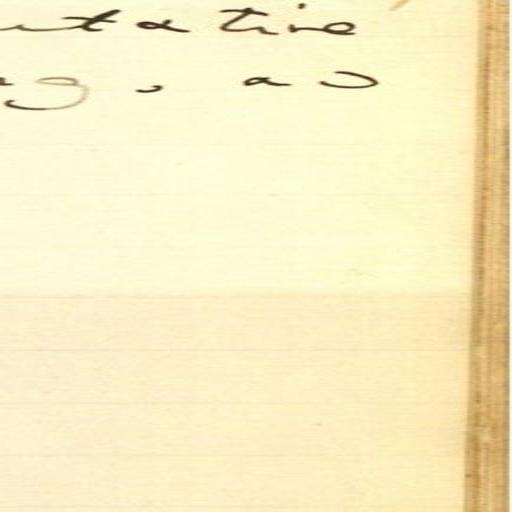 utative
, as